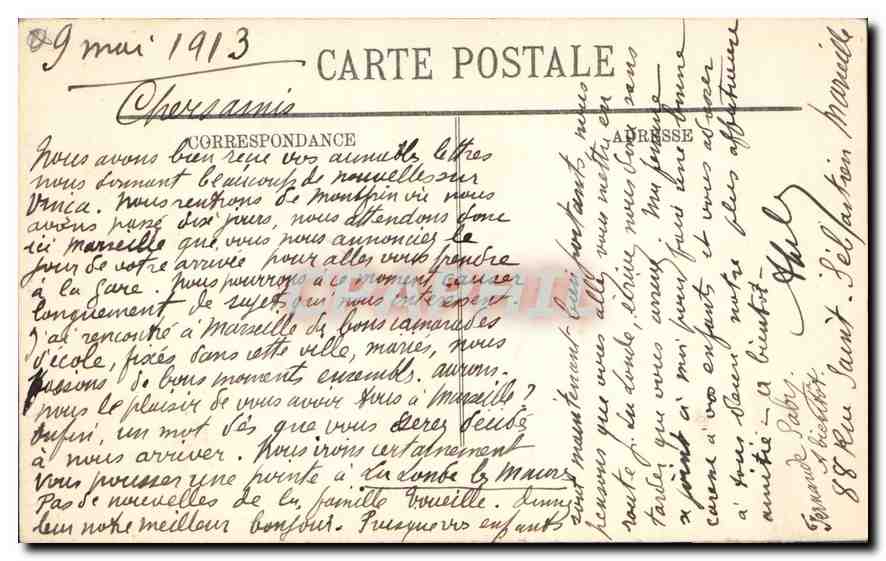 9 mai 1913
CARTE POSTALE
Chers amis
CORRESPONDANCE
ADRESSE
Nous avons bien reçu vos aimables lettres
nous donnant beaucoup de nouvelles sur
Nous rentrons de où nous
avons passé dix jours, nous attendons donc
ici Marseille que vous nous annonciez le
jour de votre arrivée pour aller vous prendre
à la gare. Nous pourrons à ce moment causer
longuement de sujets qui nous intéressent.
J'ai rencontré à Marseille de bons camarades
d'école, fixés dans cette ville, mariés, nous
passons de bons moments ensemble. aurons-
nous le plaisir de vous avoir tous à Marseille?
Enfin, un mot dès que vous serez décidé
à nous arriver. Nous irons certainement
vous pousser une pointe à La Londe les Maures
Pas de nouvelles de la famille Donnez
leur notre meilleur bonjour. Presque vos enfants
sont maintenant bien portants, nous
pensons que vous allez vous mettre en
route p. La Londe, écrivez nous donc sans
tarder que vous arrivez. Ma femme
se joint à moi pour faire une bonne
caresse à vos enfants et vous adresser
à tous deux notre plus affectueuse
amitié - a bientôt -
Fernande
A bientôt.
88 Rue Saint-Sébastien Marseille